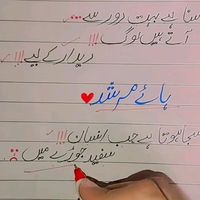 سنا ہے بہت دور سے
آتے ہیں لوگ!!!
دیدار کے لیے!!!
ہائے مرشد
سجا ہوتا ہے جب انسان!!!
سفید جوڑے میں